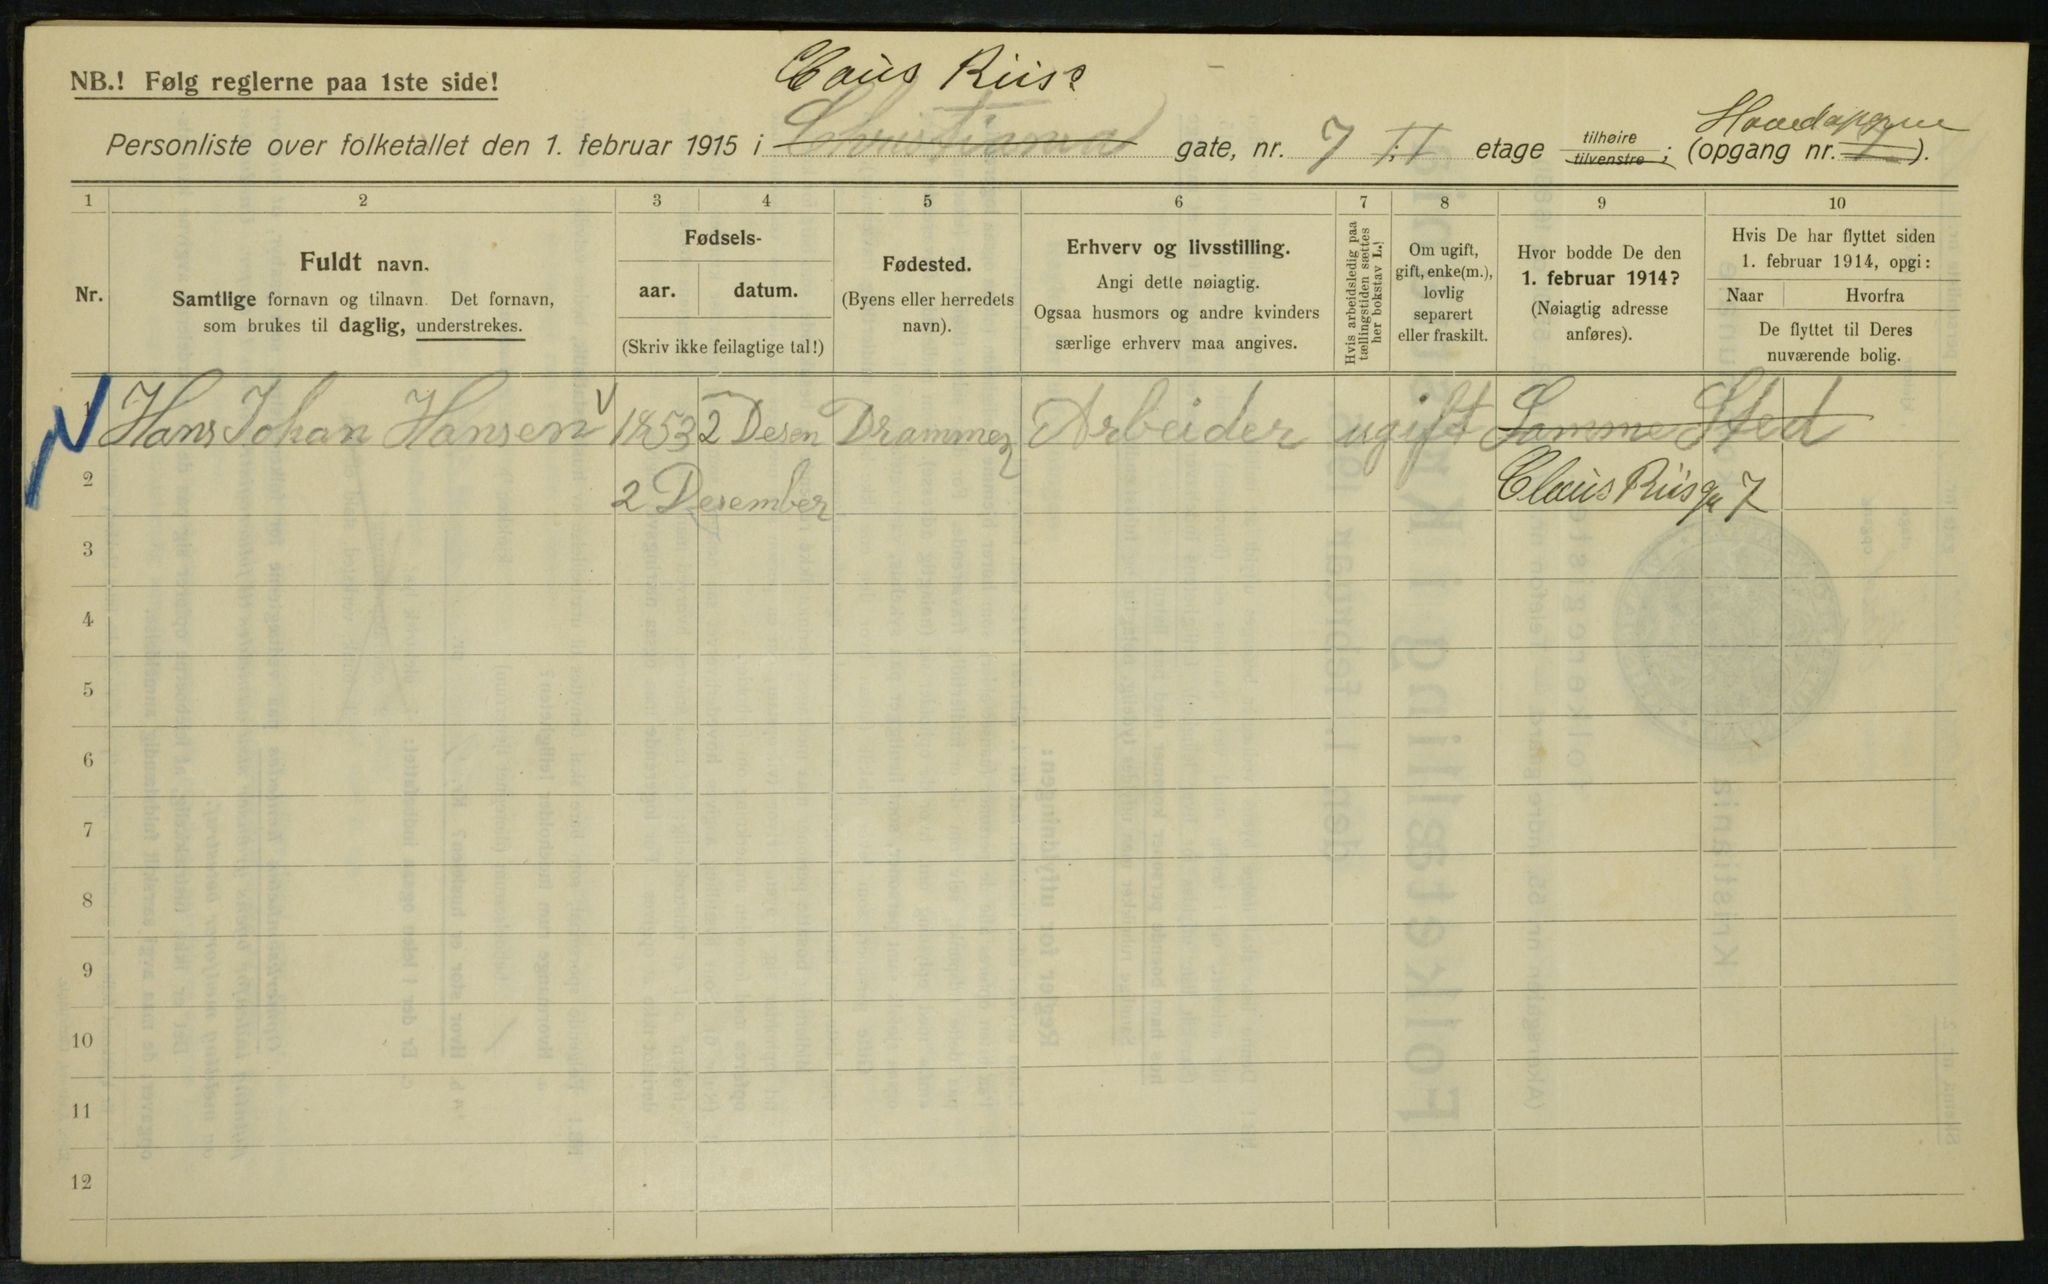 NB.! Følg reglerne paa 1ste side!
Claus Riis
Personliste over folketallet den 1. februar 1915 i Christiania gate, nr. 7 II etage tilhøire tilvenstre; (opgang nr. 1).
1 2 3 4 5 6 7 8 9 10
Nr.
Fuldt navn.
Samtlige fornavn og tilnavn. Det fornavn,
som brukes til daglig, understrekes.
Fødsels-
aar. datum.
(Skriv ikke feilagtige tal!)
Fødested.
(Byens eller herredets
navn).
Erhverv og livsstilling.
Angi dette nøiagtig.
Ogsaa husmors og andre kvinders
særlige erhverv maa angives.
Hvis arbeidsledig paa
tællingstiden sættes
her bokstav L.!
Om ugift,
gift, enke(m.),
lovlig
separert
eller fraskilt.
Hvor bodde De den
1. februar 1914?
(Nøiagtig adresse
anføres).
Hvis De har flyttet siden
1. februar 1914, opgi:
Naar Hvorfra
De flyttet til Deres
nuværende bolig.
1 Hans Johan Hansen 1853 2 Desen Drammen Arbeider ugift Samme Sted
2 2 Desember Claus Riis g. 7
3
4
5
6
7
8
9
10
11
12